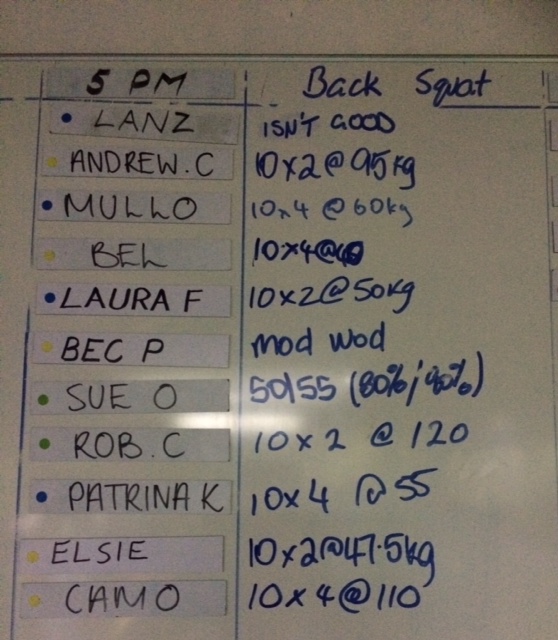 5 PM Back Squat
LANZ ISN'T GOOD
ANDREW.C 10x2@95kg
MULLO 10x4 @ 60kg
BEL 10x4@
LAURA F 10x2@50kg
BEC P mod wod
SUE O 50/55 (80%/90%)
ROB.C 10 x 2 @ 120
PATRINA K 10x4 @ 55
ELSIE 10x2@47.5kg
CAMO 10x4@110